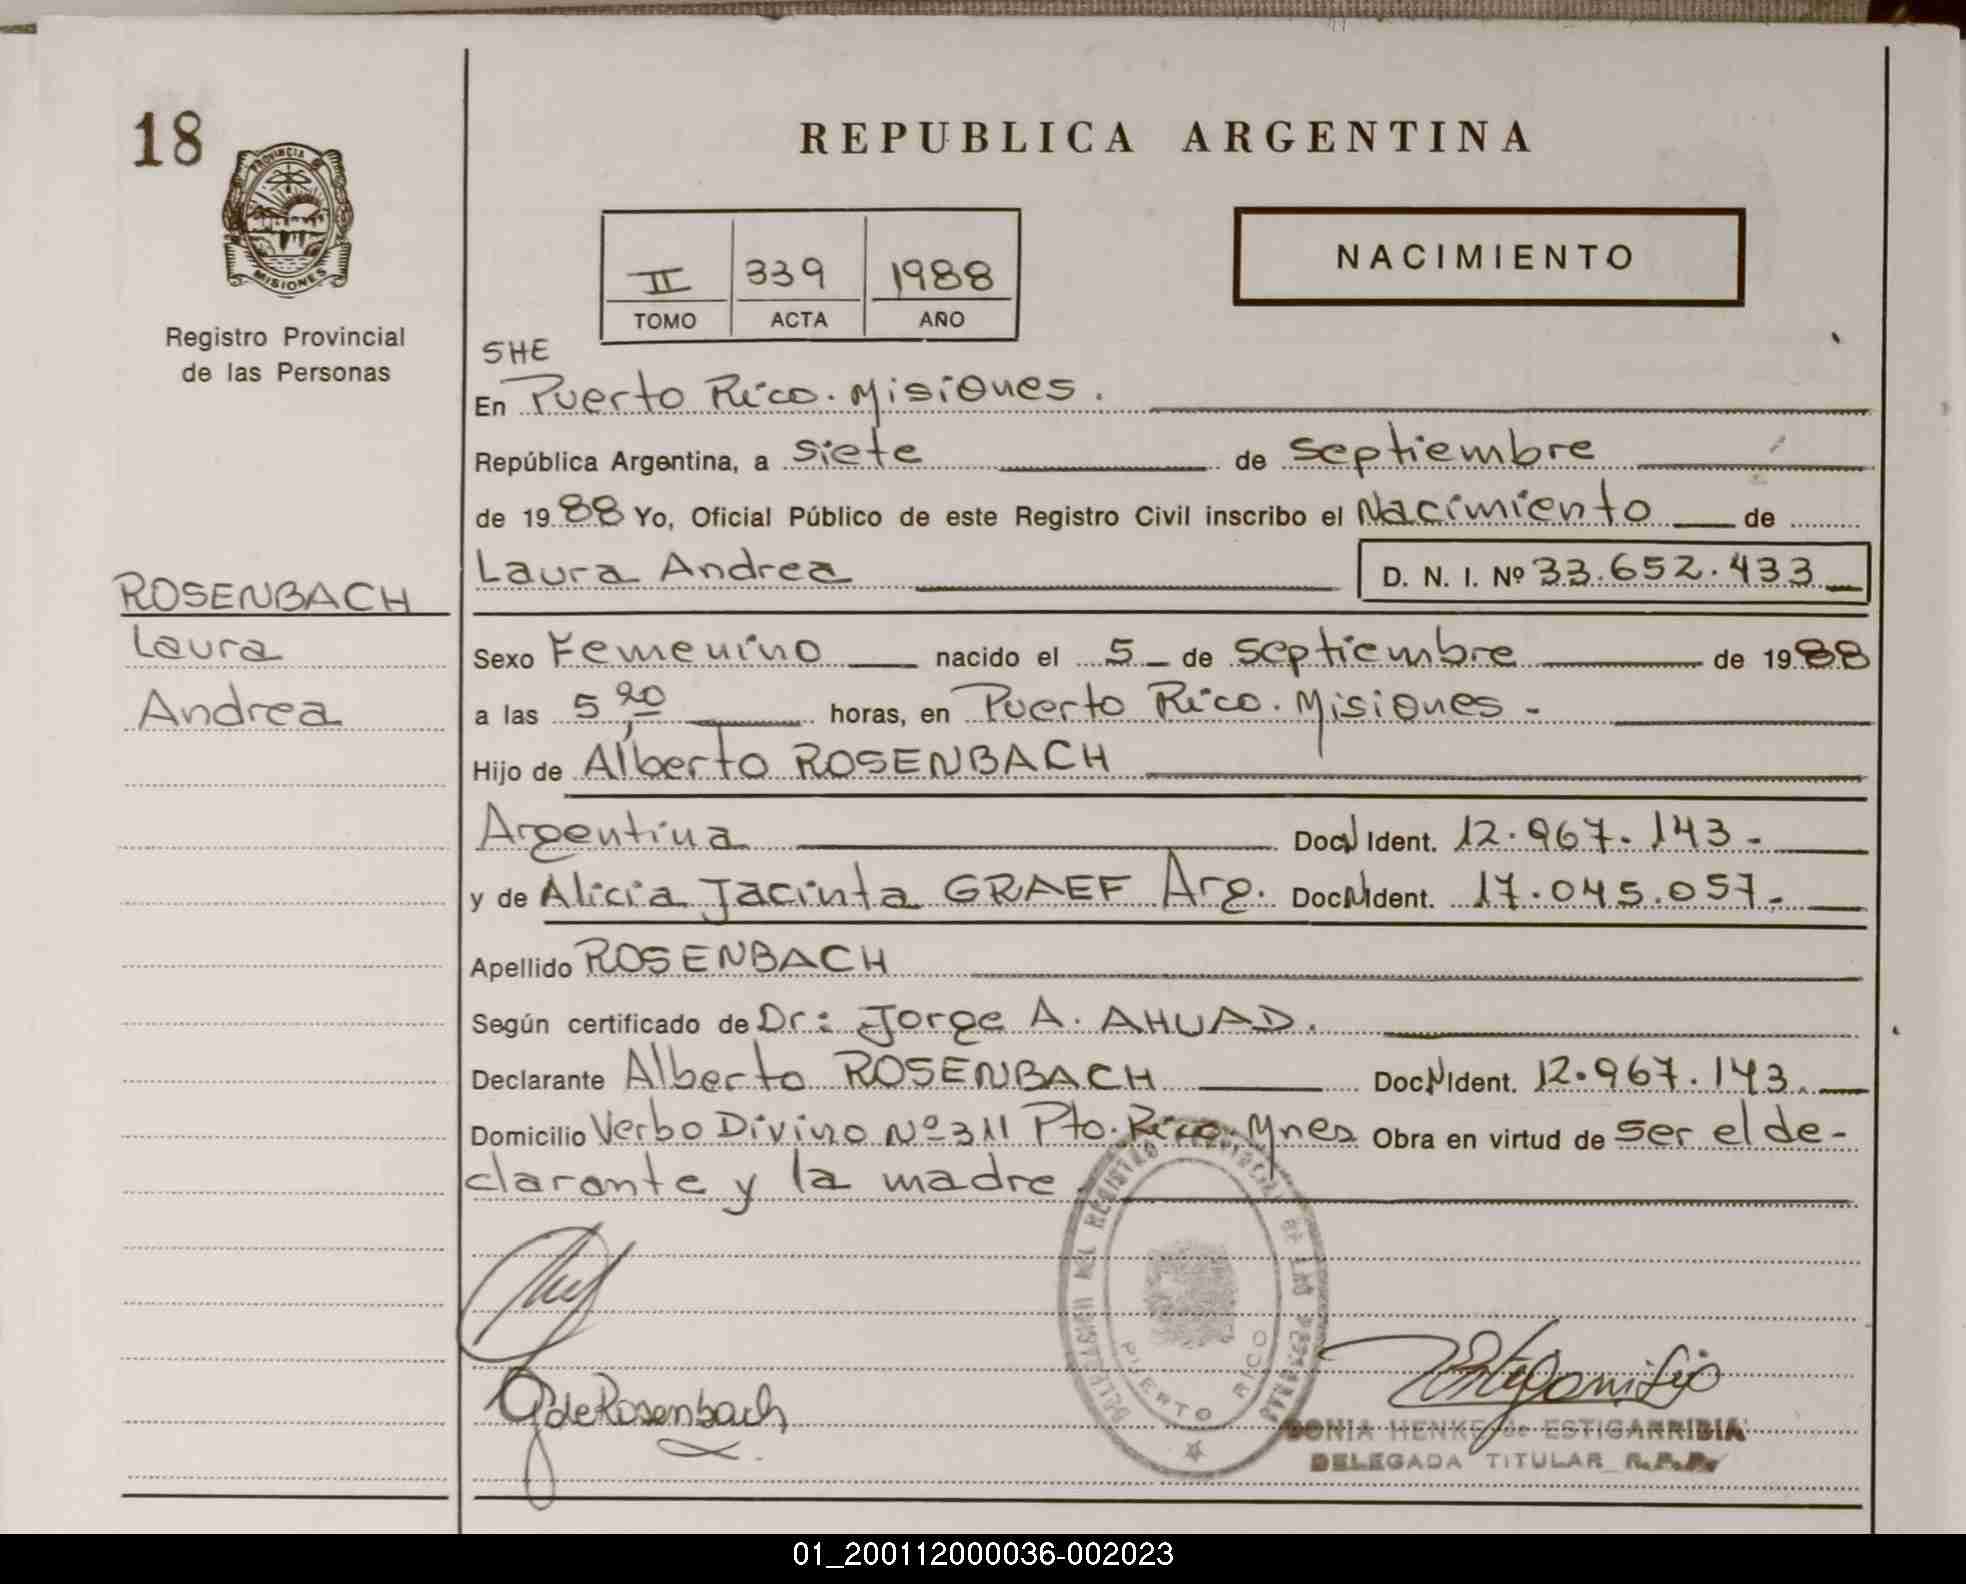 18
REPUBLICA ARGENTINA
PROVINCIA DE
MISIONES
Registro Provincial
de las Personas
II 339 1988
TOMO ACTA AÑO
NACIMIENTO
SHE
En Puerto Rico. Misiones.
República Argentina, a siete de septiembre
de 1988 Yo, Oficial Público de este Registro Civil inscribo el Nacimiento de
Laura Andrea D. N. I. Nº 33.652.433
ROSENBACH
Laura
Andrea
Sexo Femenino nacido el 5 de septiembre de 1988
a las 5,20 horas, en Puerto Rico. Misiones -
Hijo de Alberto ROSENBACH
Argentina Doc N Ident. 12.967.143-
y de Alicia Jacinta GRAEF Arg. Doc N Ident. 17.045.057-
Apellido ROSENBACH
Según certificado de Dr: Jorge A. AHUAD.
Declarante Alberto ROSENBACH Doc N Ident. 12.967.143.
Domicilio Verbo Divino Nº 311 Pto. Rico. Mnes Obra en virtud de ser el de-
clarante y la madre
DELEGACION DEL REGISTRO PROVINCIAL DE LAS PERSONAS
PUERTO RICO
de Rosenbach
SONIA HENKE de ESTIGARRIBIA
DELEGADA TITULAR R.P.P.
01_200112000036-002023